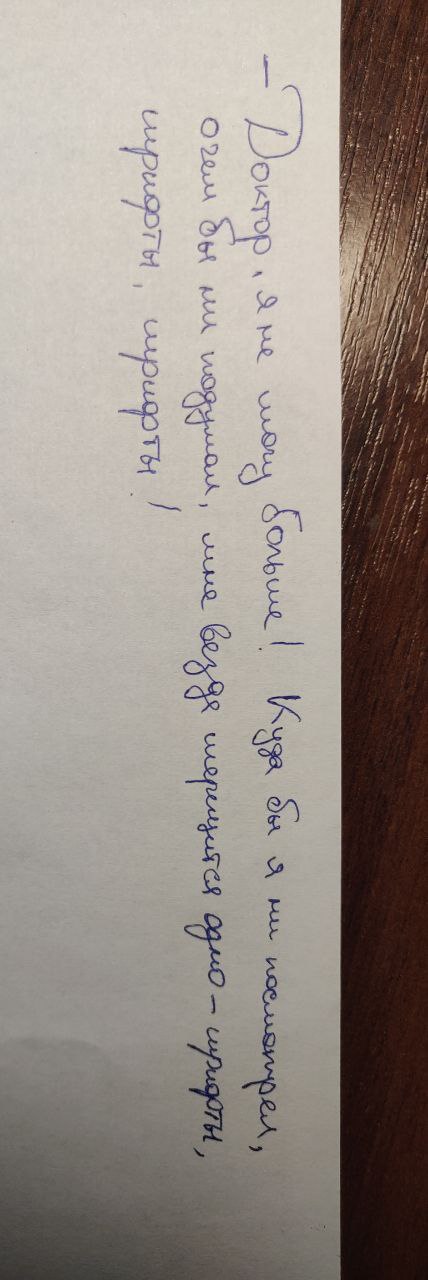 — Доктор, я не могу больше! Куда бы я ни посмотрел,
о чем бы ни подумал, мне везде мерещится одно - шрифты,
шрифты, шрифты!